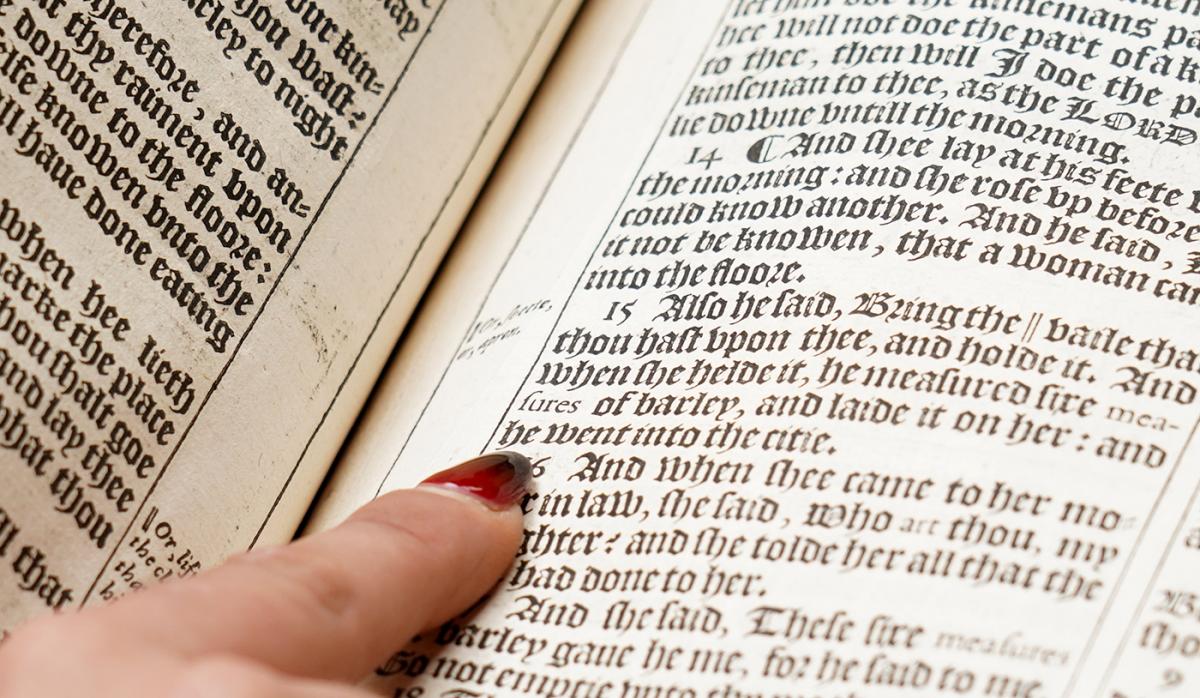 our kin-
hou wast:
rley to night
herefore, and an-
thy raiment vpon
downe to the floore:
knowen vnto the
haue done eating
when hee lieth
marke the place
thou shalt goe
and lay thee
what thou
that
|| Or, lif
hee will not doe the part of a k
to thee, then will I doe the p
kinseman to thee, as the LORD
lie downe vntill the morning.
14 ¶ And shee lay at his feete
the morning: and she rose vp before
could know another. And he said,
it not be knowen, that a woman
into the floore.
15 Also he said, Bring the || vaile tha
|| Or, sheete,
or, apron.
thou hast vpon thee, and holde it. And
when she helde it, he measured sixe mea-
sures of barley, and laide it on her: and
he went into the citie.
6 And when shee came to her mo
r in law, she said, Who art thou, my
ghter: and she tolde her all that the
had done to her.
And she said, These sixe measures
barley gaue he me, for he said to me,
Go not emptie vnto
18
9